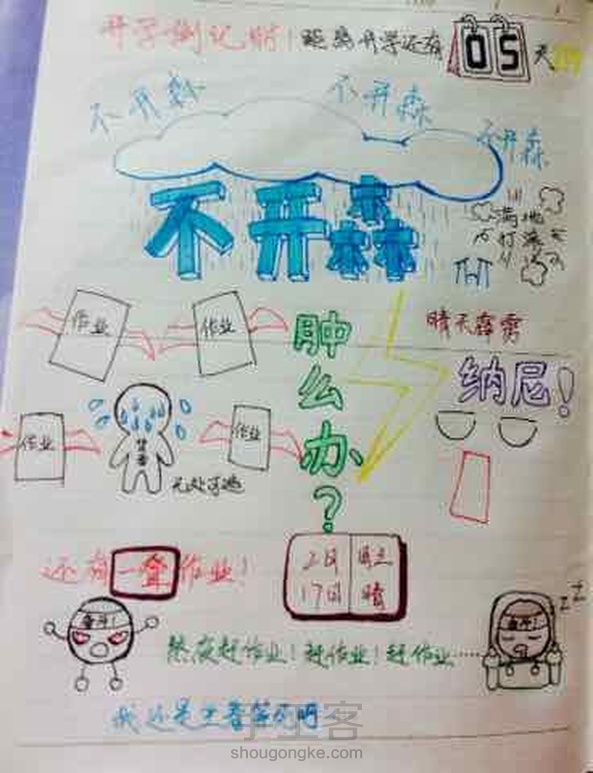 开学倒记时！距离开学还有05天
不开森
不开森
不开森
不开森
满地
打滚
作业
作业
肿么办？
晴天霹雳
纳尼！
作业
作业
无处可逃
还有一套作业！
2月
17日
周三
晴
奋斗！
奋斗！
ZZZ
熬夜赶作业！赶作业！赶作业……
我还是
shougongke.com